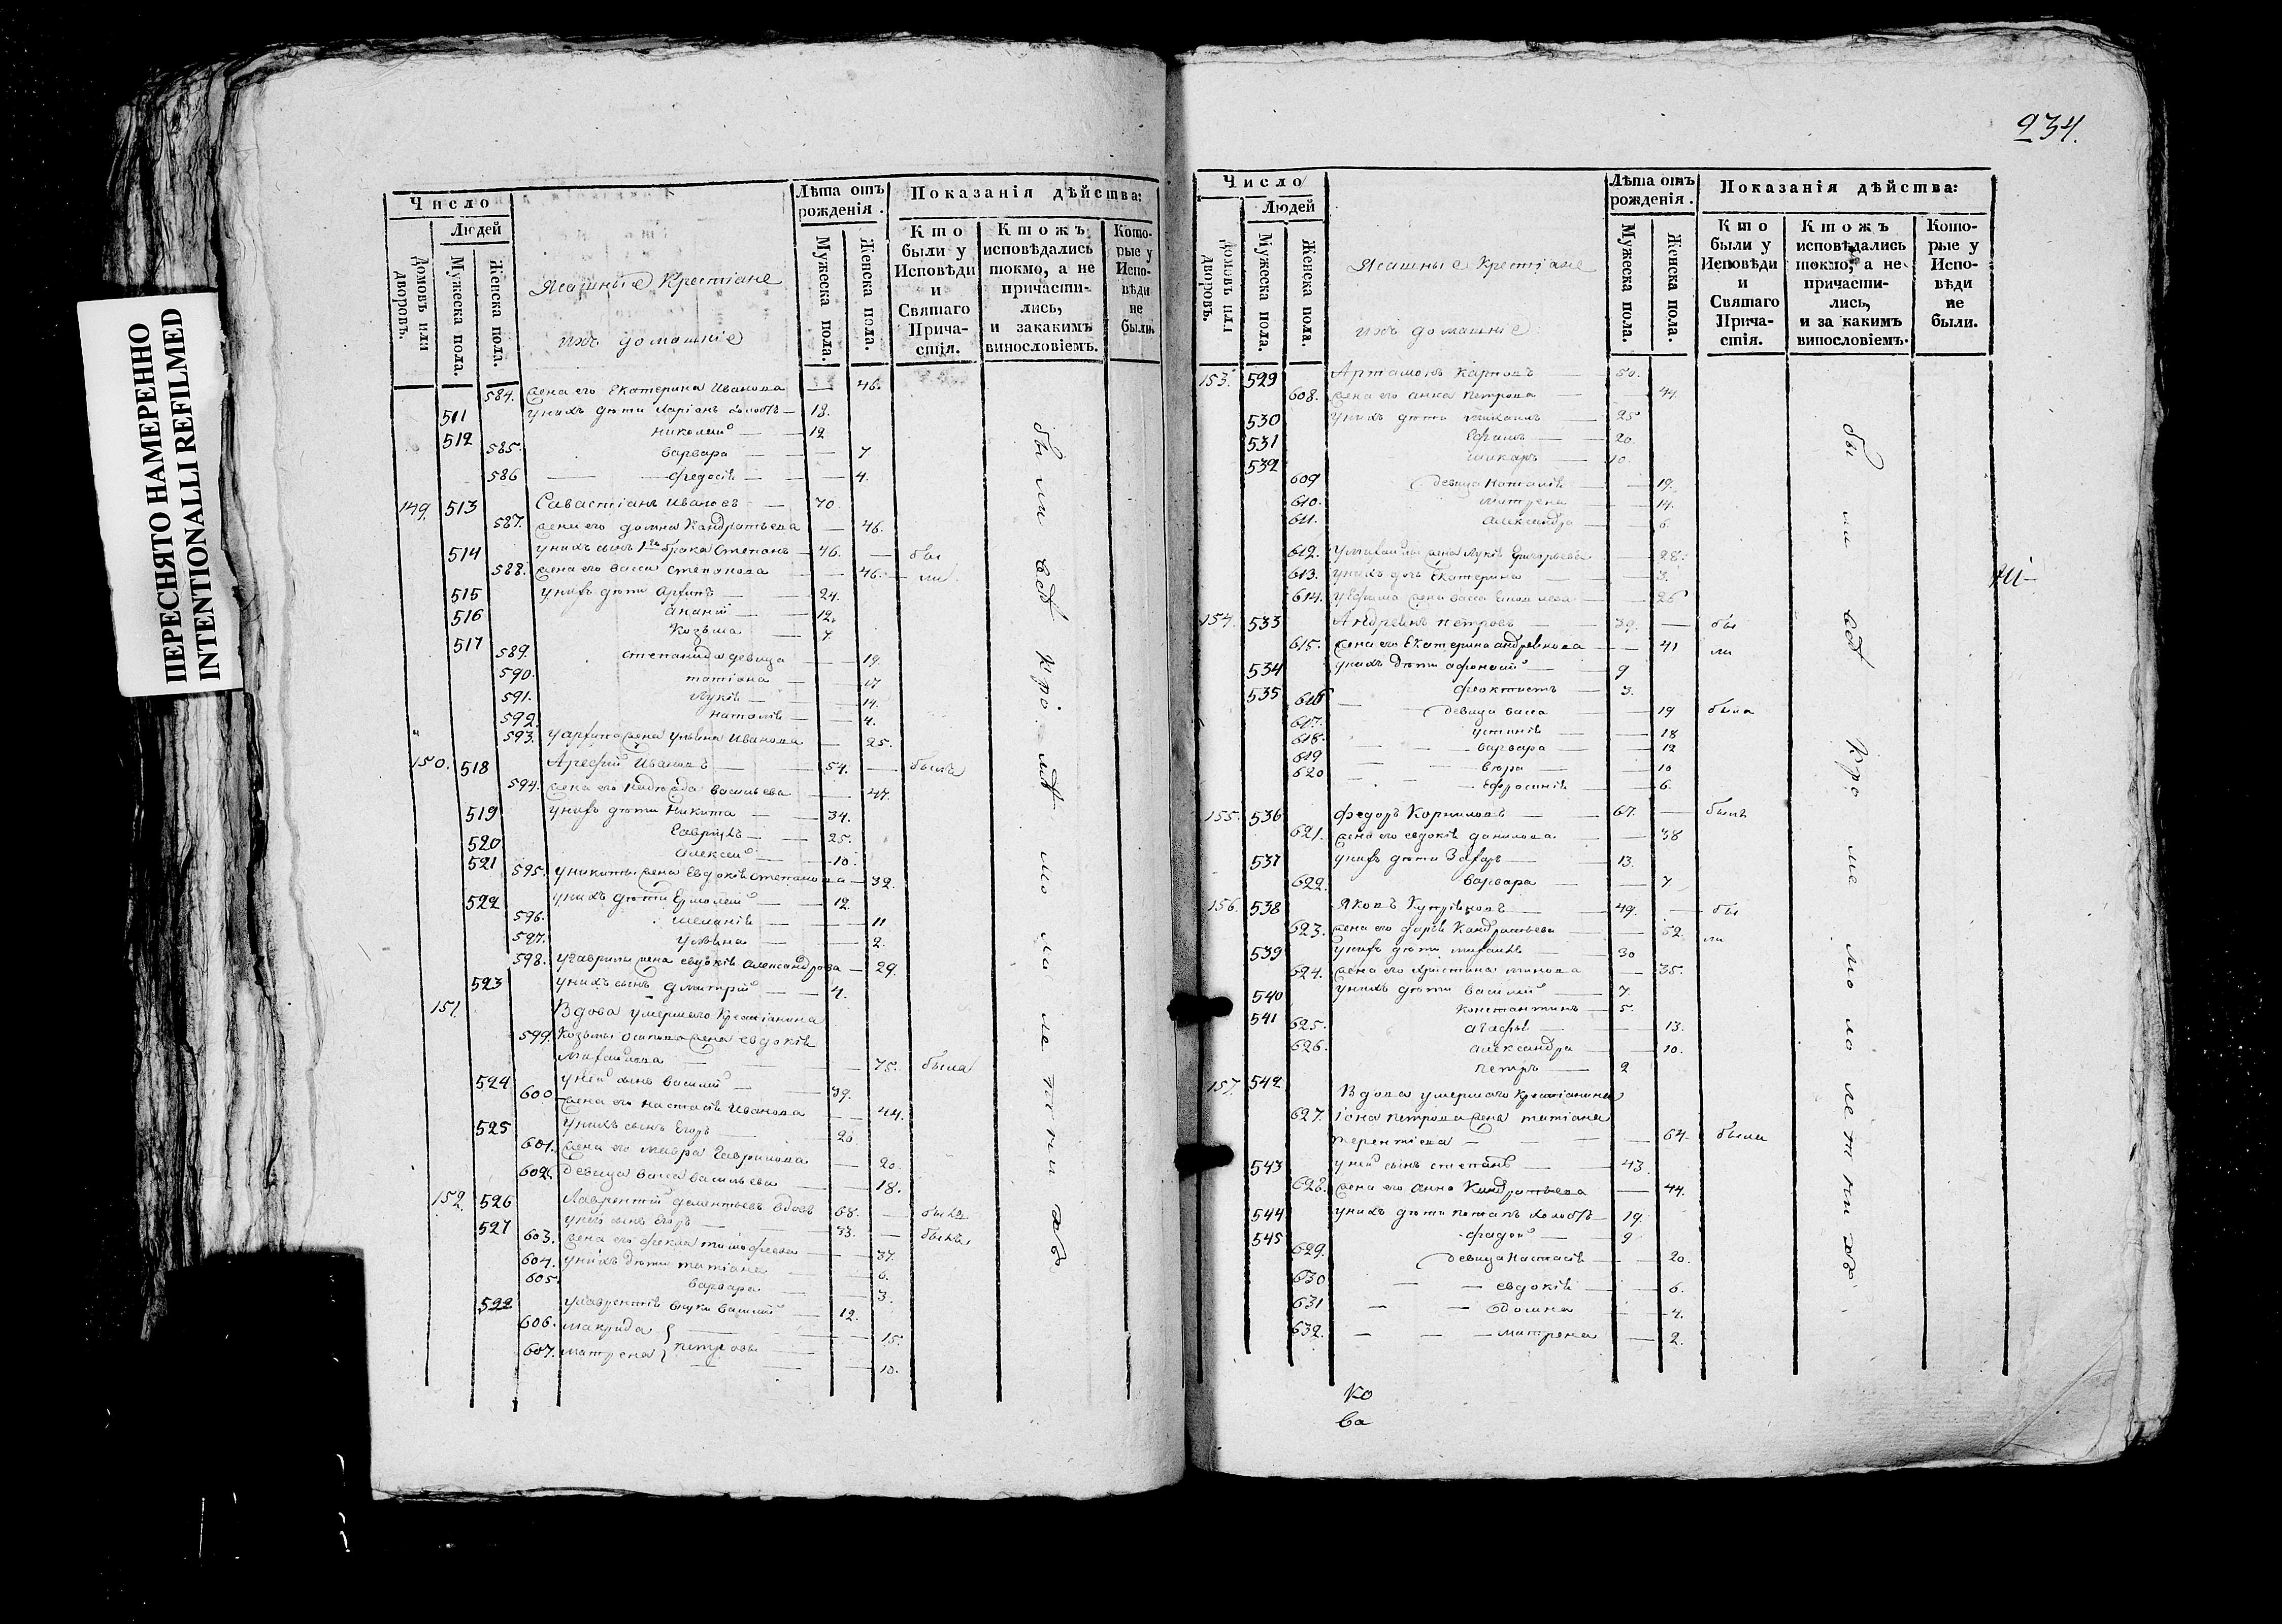 ПЕРЕСНЯТО НАМЕРЕННО
INTENTIONALLI REFILMED
Число
Людей
Домовъ или дворовъ.
Мужеска пола.
Женска пола.
Ясашные Крестіане
ихъ домашніе
Лѣта отъ рожденія.
Мужеска пола.
Женска пола.
Показанія дѣйства:
Кто были у Исповѣди и Святаго Причастія.
Ктожъ исповѣдались токмо, а не причастились, и закакимъ винословіемъ.
Которые у Исповѣди не были.
584. жена его Екатерина Иванова — 46.
511 у нихъ дѣти Ларіонъ холостъ — 18.
512 Николай — 12
585. Варвара — 7
586 Федосія — 4.
149. 513 Савастіанъ Ивановъ — 70
587. жена его Домна Кандратьева — 46.
514 у нихъ сынъ 1го брака Степанъ — 46. — бы
588. жена его Васса Степанова — 46. — ли
515 у нихъ дѣти Архипъ — 24.
516 Ананій — 12.
517 Козьма — 7
589. Степанида девица — 19.
590. Татіана — 17
591. Лукія — 14.
592. Наталія — 4.
593. у Архипа жена Ульяна Иванова — 25.
150. 518 Арефій Ивановъ — 54. — былъ
594. жена его Надежда Васильева — 47.
519 у нихъ дѣти Никита — 34.
520 Гаврилъ — 25.
521 Алексей — 10.
595. у Никиты жена Евдокія Степанова — 32.
522 у нихъ дѣти Ермолай — 12
596. Меланія — 11
597. Ульяна — 2.
598. у Гаврилы жена Евдокія Александрова — 29.
523 у нихъ сынъ Дмитрій — 4.
151. Вдова умершаго Крестіанина
599. Козьмы Осипова жена Евдокія
Михайлова — 75. была
524 у ней сынъ Василій — 39.
600 жена его Настасія Иванова — 44.
525 у нихъ сынъ Егоръ — 20
601. жена его Мавра Гаврилова — 20.
602. Девица Васса Васильева — 18.
152. 526 Лаврентій Дементьевъ вдовъ — 68. — былъ
527 у него сынъ Егоръ — 33. — былъ
603. жена его Фекла Тимофеева — 37.
604. у нихъ дѣти Татіана — 6.
605. Варвара — 3.
522 у Лаврентія внуки Василій — 12.
606. Макрида } — 15.
607. Матрена } Петровы — 10.
были всѣ кромѣ малолетнихъ
234.
Число
Людей
Домовъ или дворовъ.
Мужеска пола.
Женска пола.
Ясашные Крестіане
ихъ домашніе
Лѣта отъ рожденія.
Мужеска пола.
Женска пола.
Показанія дѣйства:
Кто были у Исповѣди и Святаго Причастія.
Ктожъ исповѣдались токмо, а не причастились, и за какимъ винословіемъ.
Которые у Исповѣди не были.
153. 529 Артамонъ Карповъ — 50.
608. жена его Анна Петрова — 44.
530 у нихъ дѣти Михаилъ — 25
531 Ефимъ — 20.
532 10.
609 девица Наталія — 19.
610. Матрена — 14.
611. Александра — 6.
612. у Михаилы жена Лукія Григорьева — 28.
613. у нихъ дочь Екатерина — 3.
614. у Ефима жена Васса — 25
154. 533 Андреянъ Петровъ — 39. — бы
615. жена его Екатерина Андревнова — 41 ли
534 у нихъ дѣти Афонасій — 9
535 Феоктистъ — 3.
616 девица Васса — 19 была
617. Устинія — 18
618. Варвара — 12
619 10
620 Ефросинія — 6.
155. 536 Федоръ Корниловъ — 67. — былъ
621. жена его Евдокія Данилова — 38
537 у нихъ дѣти Захаръ — 13.
622. Варвара — 7
156. 538 Яковъ Купріяновъ — 49. — бы
623. жена его Дарія Кандратьева — 52. ли
539 у нихъ дѣти Михаилъ — 30
624. жена его Христина Минова — 35.
540 у нихъ дѣти Василій — 7
541 Константинъ — 5.
625. Агафія — 13.
626. Александра — 10.
542 Петръ — 2
157. Вдова умершаго Крестіанина
627. Іона Петрова жена Татіана
Терентіева — 64. была
543 у ней сынъ Степанъ — 43.
628. жена его Анна Кандратьева — 44.
544 у нихъ дѣти Потапъ холостъ — 19.
545 Фадей — 9
629. девица Настасія — 20.
630 Евдокія — 6.
631 Домна — 4.
632. Матрена — 2.
были всѣ кроме малолетнихъ
ко
ва